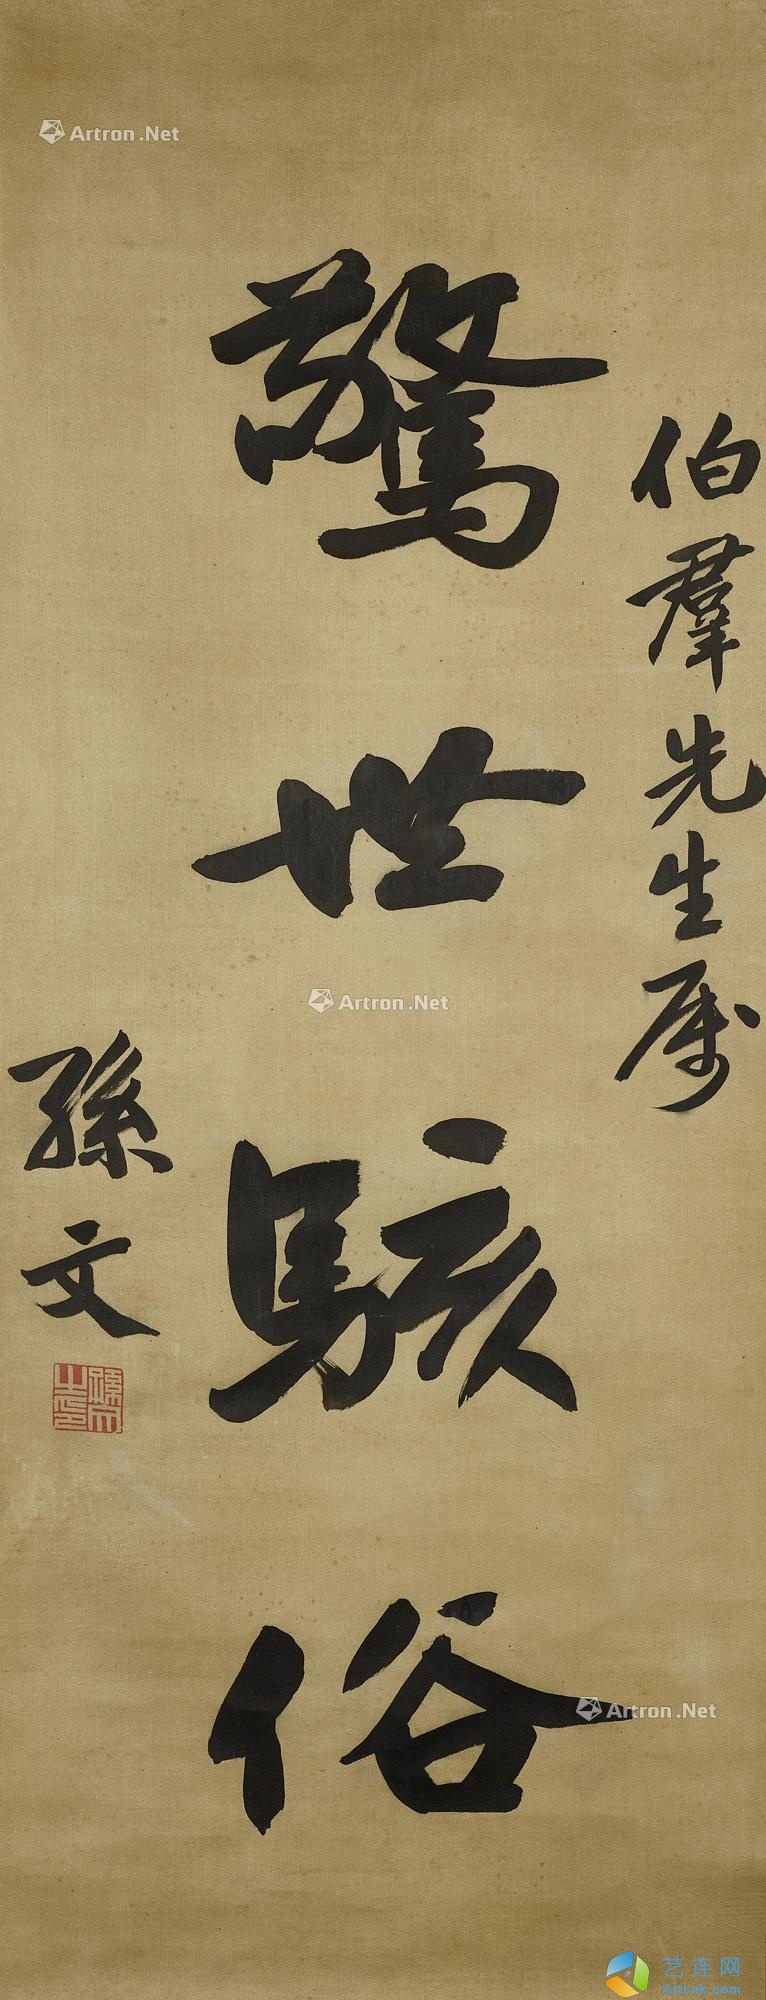 伯羣先生属
驚世駭俗
孫文
孫文之印
Artron.Net
Artron.Net
Artron.Net
艺连网
ArtLnk.com